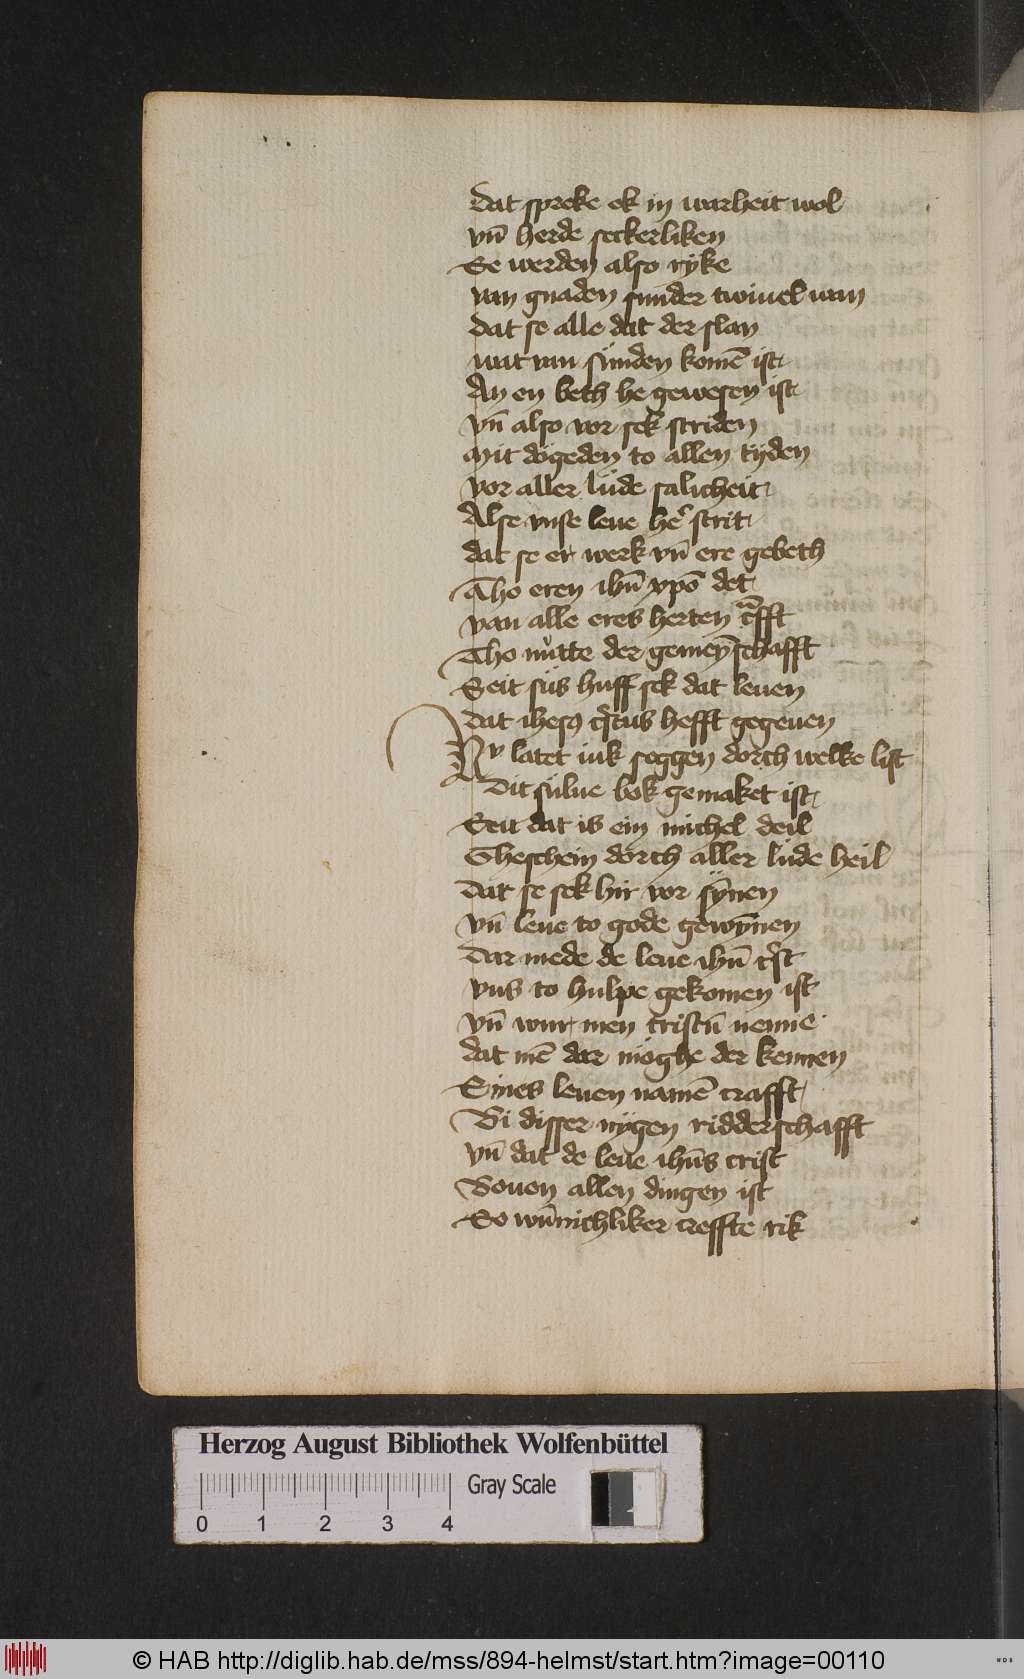 dat spreke ek in warheit wol
vn̄ herde seckerliken
Se werden also ryke
van gnaden sunder twiuel wan
dat se alle dat der slan
wat van sünden komē ist
An en beth he gewesen ist
vn̄ also vor sek striden
Mit dögeden to allen tyden
vor aller lüde salicheit
Alse vnse leue he͛ strit
dat se er werk vn̄ ere gebeth
Tho eren ihū xpō det
van alle eres herten c̄fft
Tho nütte der gemeȳschafft
Seit süs huff sek dat leuen
dat ihesꝯ c̄stus hefft gegeuen
Nv latet iuk seggen dorch welke list
dit sülue bok gemaket ist
Seit dat is ein michel deil
Gheschein dorch aller lüde heil
dat se sek hir vor sȳnen
vn̄ leue to gode gewȳnen
dar mede de leue ihū c̄st
vns to hulpe gekomen ist
vn̄ wur men cristū nenne
dat mē dar möghe der kennen
Sines leuen namē crafft
Bi disser nygen ridderschafft
vn̄ dat de leue ihūs crist
Bouen allen dingen ist
So wūnichliker creffte rik
Herzog August Bibliothek Wolfenbüttel
Gray Scale
0 1 2 3 4
© HAB http://diglib.hab.de/mss/894-helmst/start.htm?image=00110